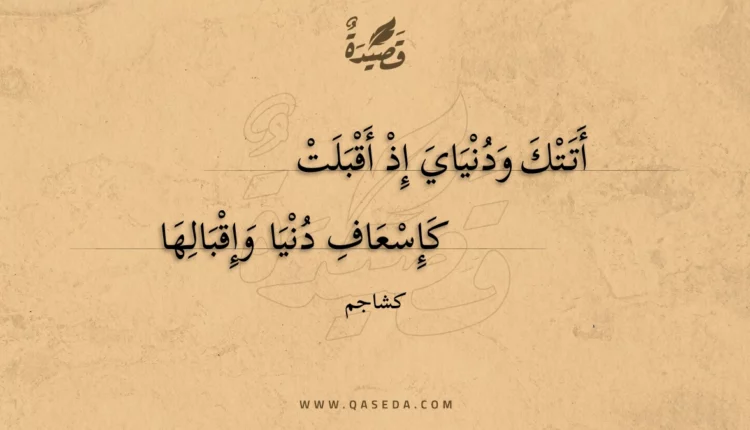 قَصِيْدَةٌ
أَتَتْكَ وَدُنْيَايَ إِذْ أَقْبَلَتْ
كَإِسْعَافِ دُنْيَا وَإِقْبَالِهَا
كشاجم
WWW.QASEDA.COM